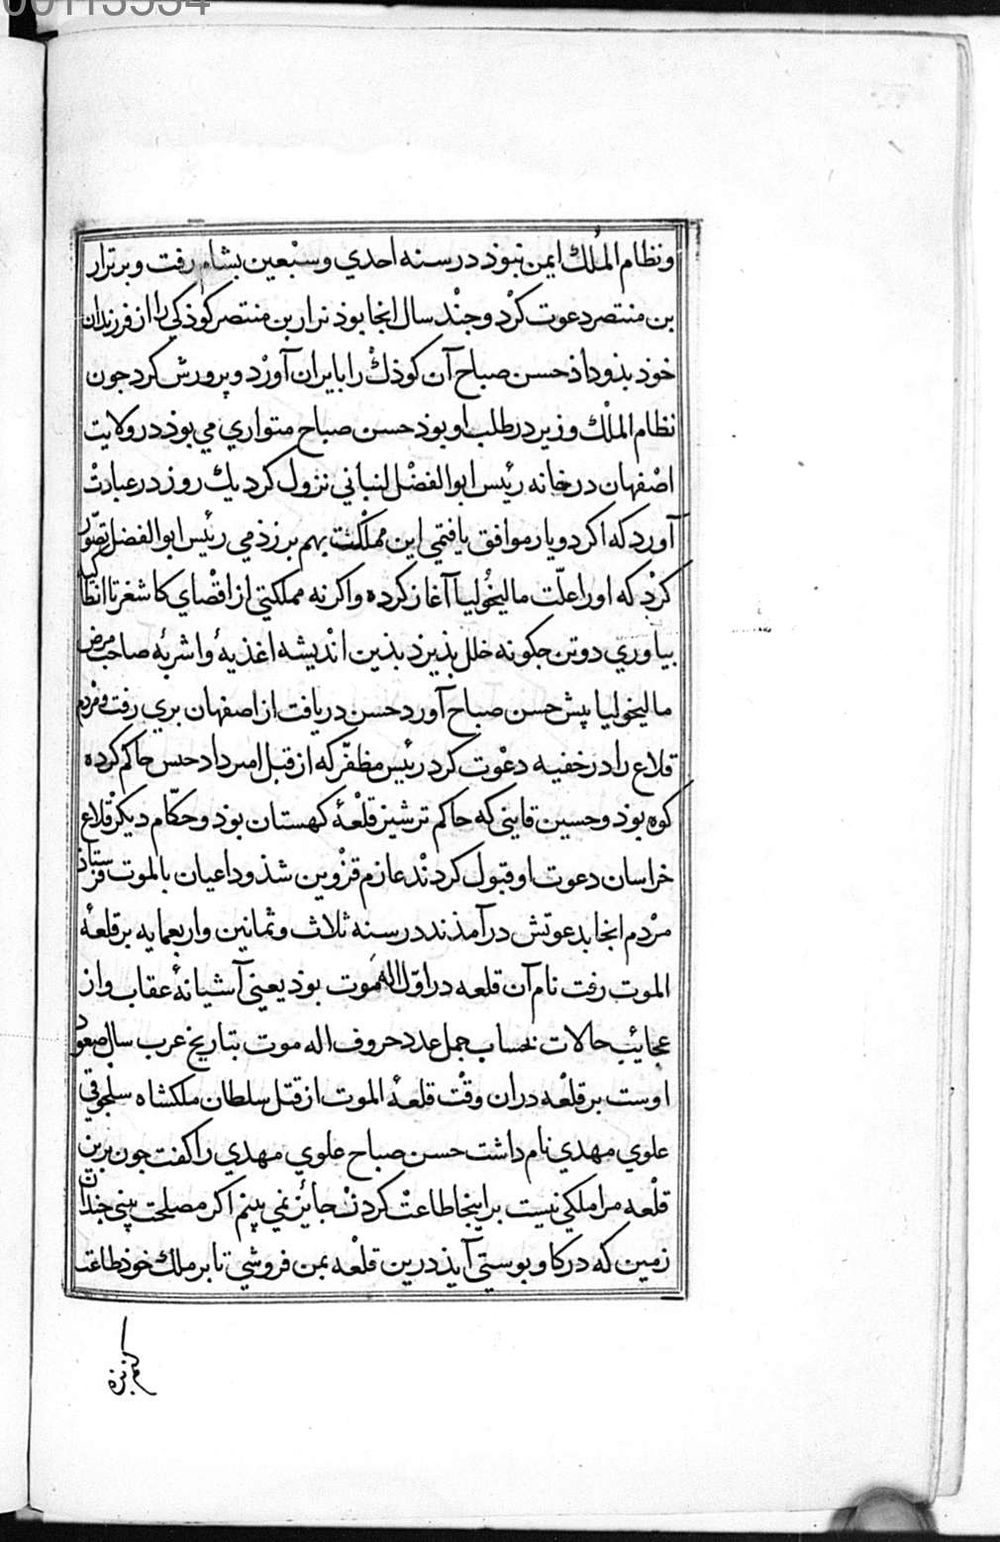 00113334
ونظام المُلك ایمن نبوذ در سنه احدي وسبْعین بشام رفت وبر نزار
بن منتصر دعوت کرْد وجنْد سال انجا بوذ نزار بن منتصر کوْذکی را از فرزندان
خوذ بذو داذ حسن صباح آن کوذك را بایران آورْد وپرورش کرد جون
نظام الملْك وزیر در طلب او بوذ حسن صباح متواري مي بوذ در ولایت
اصْفهان در خانه رئیس ابو الفضْل لنبانی نزول کرد یك روز در عبارتْ
آورد که اکر دو یار موافق یافتمی این مملکت بهم برزذمي رئیس ابو الفضل تصّور
کرْد که او را علّت مالیخُولیا آغاز کرده واکر نه مملکتي از اقْصاي کاشغر تا انطاکیه
بیاوري دو تن جکونه خلل بذیرد بذین انْدیشه اغذیهٔ واشربهٔ صاحب مرض
مالیخولیا پیش حسن صباح آورد حسن دریافت از اصفهان بري رفت ومردم
قلاع را در خفیه دعْوت کرد رئیس مظفّر که از قبل امیرداد حبس حاکم کرده
کوه بوذ وحسین قاینی که حاکم ترشیز قلْعهٔ کهستان بوذ وحکّام دیکر قلاع
خراسان دعوت او قبول کردنْد عازم قزْوین شذ وداعیان بالموت فرستاذ
مرْدم انجا بدعوتش درآمذند در سنه ثلاث وثمانین واربعمایه بر قلعهٔ
الموت رفت نام آن قلعه در اوّل اله موت بوذ یعنی آشیانهٔ عقاب واز
عجایب حالات بحساب جمل عدد حروف اله موت بتاریخ عرب سال صعود
اوست بر قلْعه در ان وقْت قلعهٔ الموت از قبل سلطان ملکشاه سلجوقي
علوي مهدي نام داشت حسن صباح علوي مهدي را کفت جون برین
قلْعه مرا ملکي نیست بر اینجا طاعتْ کردنْ جائز نمي بینم اکر مصلحت بینی جندان
زمین که در کاو بوستی آیذ درین قلْعه بمن فروشي تا بر ملك خوذ طاعت
کنم بنده